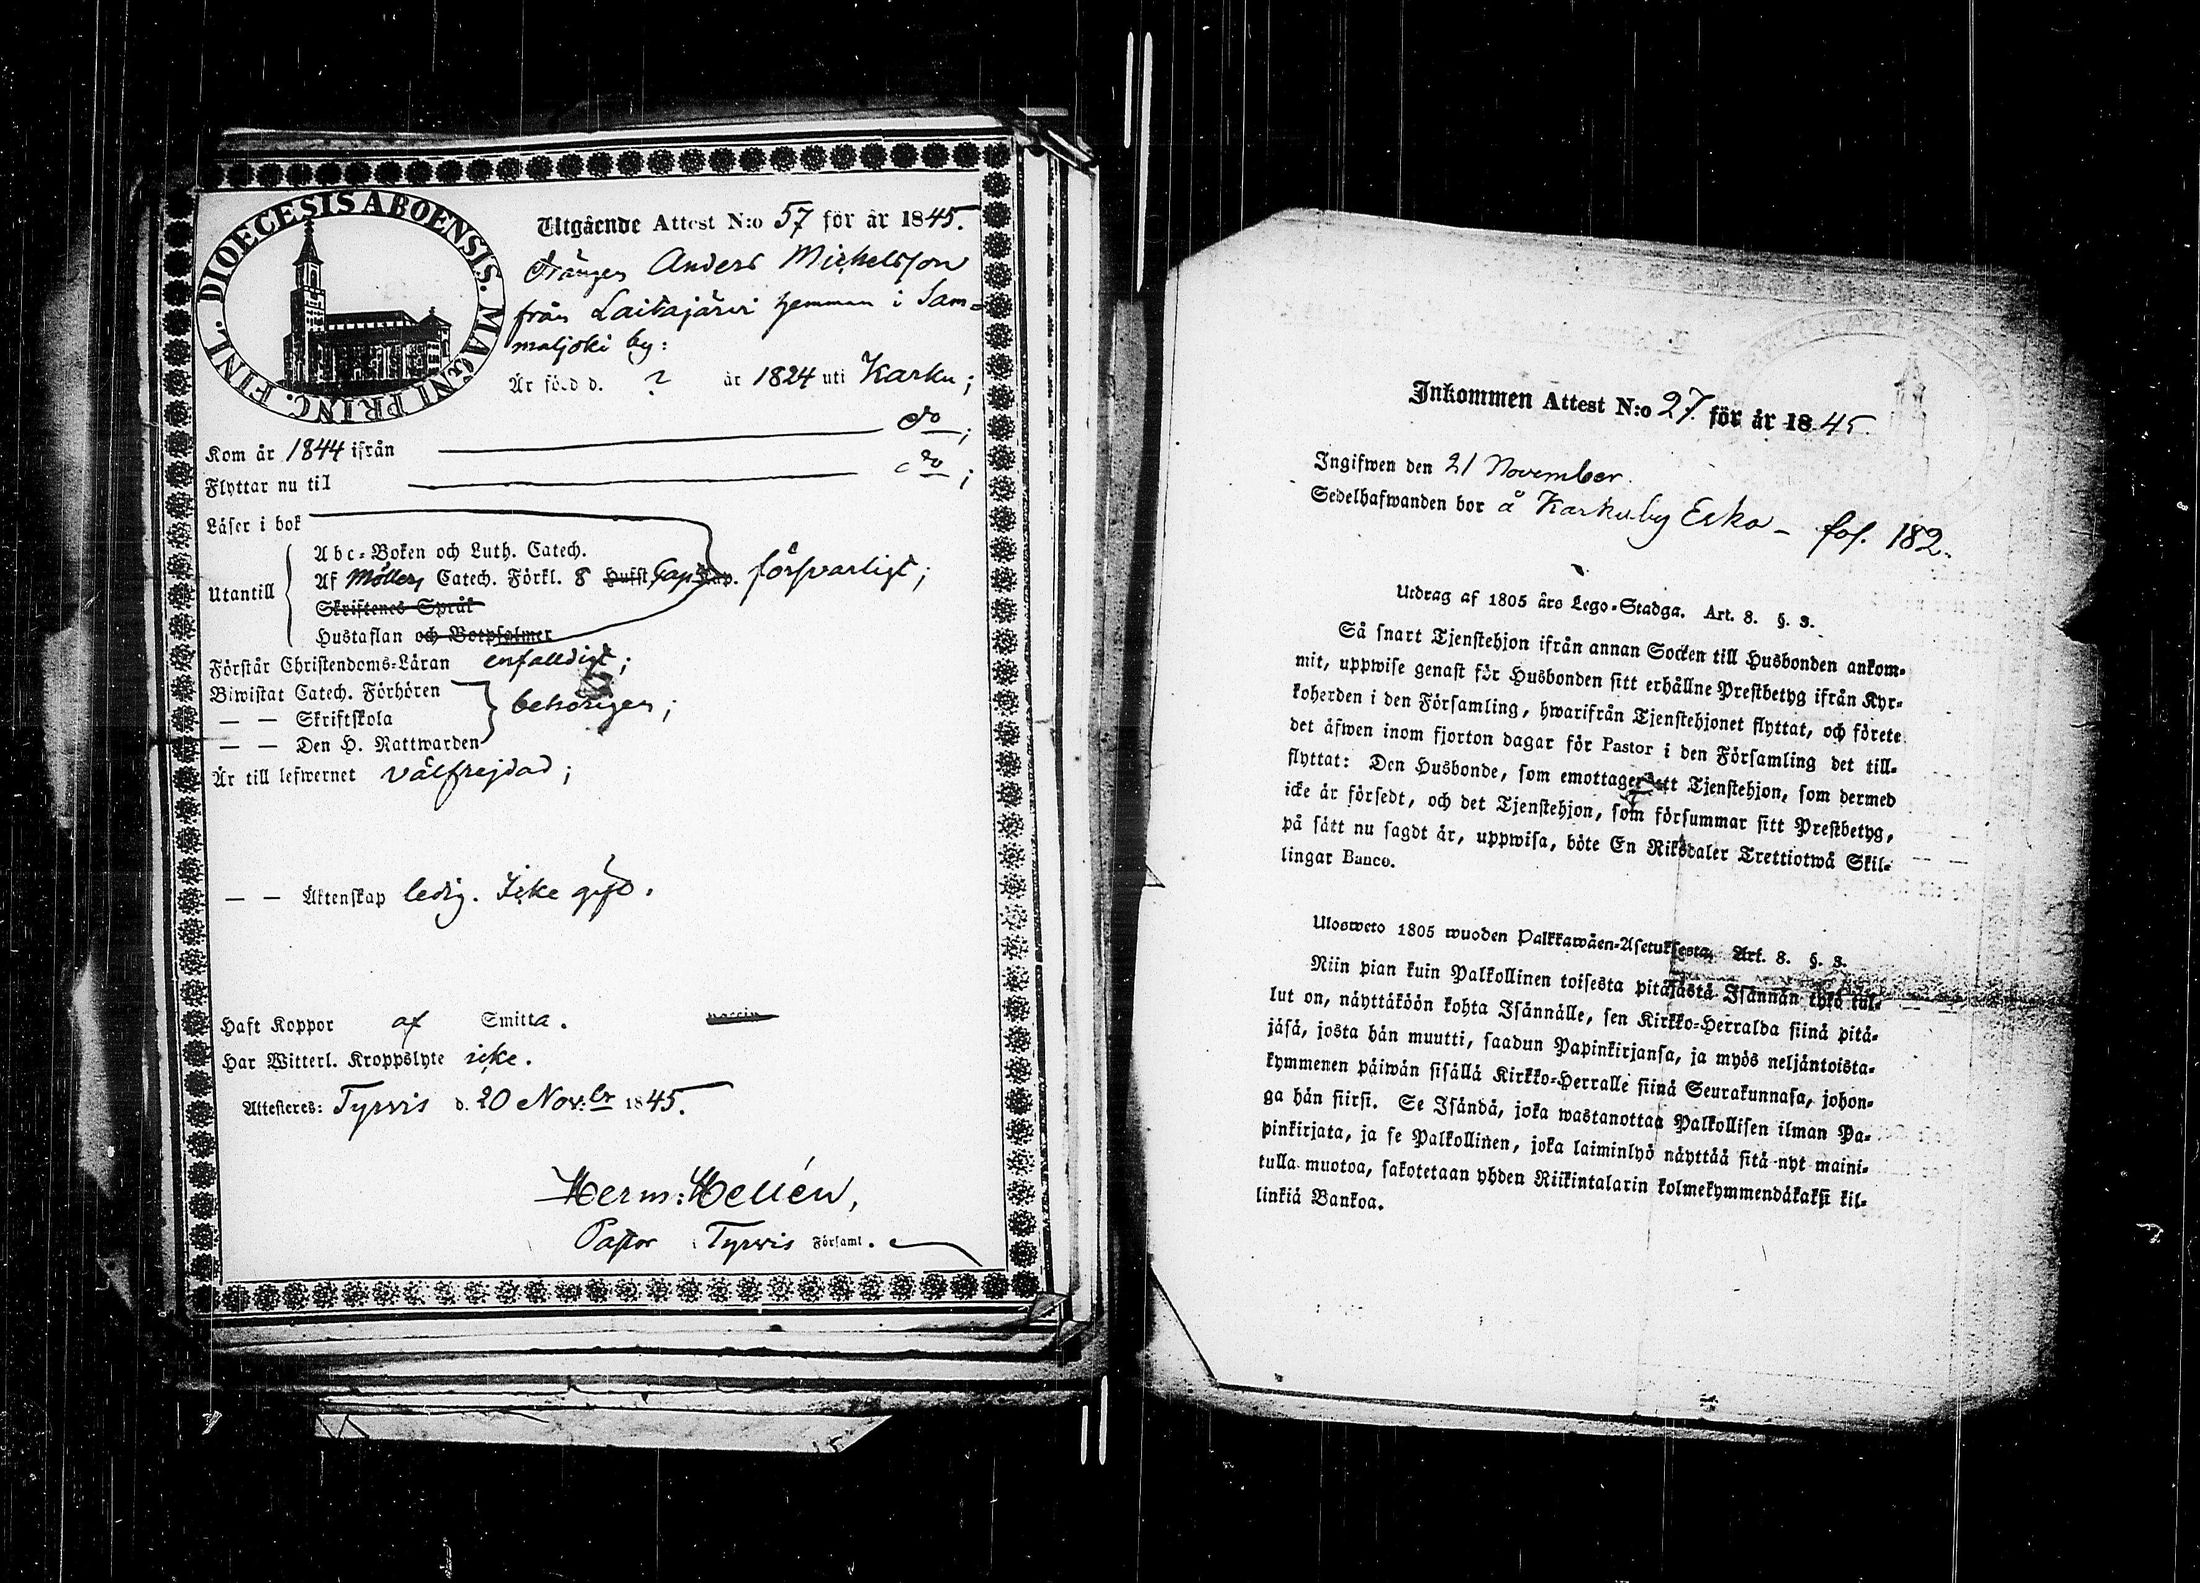 DIOECESIS ABOENSIS. MAGNI PRINC. FINL.
Utgående Attest N:o 57 för år 1845.
Drängen Anders Michelsson
från Laitajärvi hemman i Sam=
maljoki by:
Är född d. ? år 1824 uti Karku;
Kom år 1844 ifrån do;
Flyttar nu till do;
Läser i bok
Utantill
Abc-Boken och Luth. Catech.
Af Möllers Catech. Förkl. 8 Hufst. Cap. försvarligt;
Skriftenes Språk
Hustaflan och Botpsalmer
Förstår Christendoms-Läran enfalldigt;
Biwistat Catech. Förhören
— — Skriftskola behörigen;
— — Den H. Nattwarden
Är till lefwernet välfrejdad;
— — Äktenskap ledig. Icke gift.
Haft Koppor af Smitta. vaccin
Har Witterl. Kroppslyte icke.
Attesteres: Tyrvis d. 20 Nov:br 1845.
Herm: Hellén,
Pastor i Tyrvis Församl.
Inkommen Attest N:o 27. för år 1845.
Ingifwen den 21 November.
Sedelhafwanden bor å Karkuby Esko – fol. 182.
Utdrag af 1805 års Lego-Stadga. Art. 8. §. 3.
Så snart Tjenstehjon ifrån annan Socken till Husbonden ankom-
mit, uppwise genast för Husbonden sitt erhållne Prestbetyg ifrån Kyr-
koherden i den Församling, hwarifrån Tjenstehjonet flyttat, och förete
det äfwen inom fjorton dagar för Pastor i den Församling det till-
flyttat: Den Husbonde, som emottager ett Tjenstehjon, som dermed
icke är försedt, och det Tjenstehjon, som försummar sitt Prestbetyg,
på sätt nu sagdt är, uppwisa, böte En Riksdaler Trettiotwå Skil-
lingar Banco.
Ulosweto 1805 wuoden Palkkawäen-Asetuksesta, Art. 8. §. 3.
Niin pian kuin Palkollinen toisesta pitäjästä Isännän tykö tul-
lut on, näyttäköön kohta Isännälle, sen Kirkko-Herralda siinä pitä-
jäsä, josta hän muutti, saadun Papinkirjansa, ja myös neljäntoista-
kymmenen päiwän sisällä Kirkko-Herralle siinä Seurakunnasa, johon-
ga hän siirsi. Se Isändä, joka wastanottaa Palkollisen ilman Pa-
pinkirjata, ja se Palkollinen, joka laiminlyö näyttää sitä nyt maini-
tulla muotoa, sakotetaan yhden Riikintalarin kolmekymmendäkaksi kil-
linkiä Bankoa.